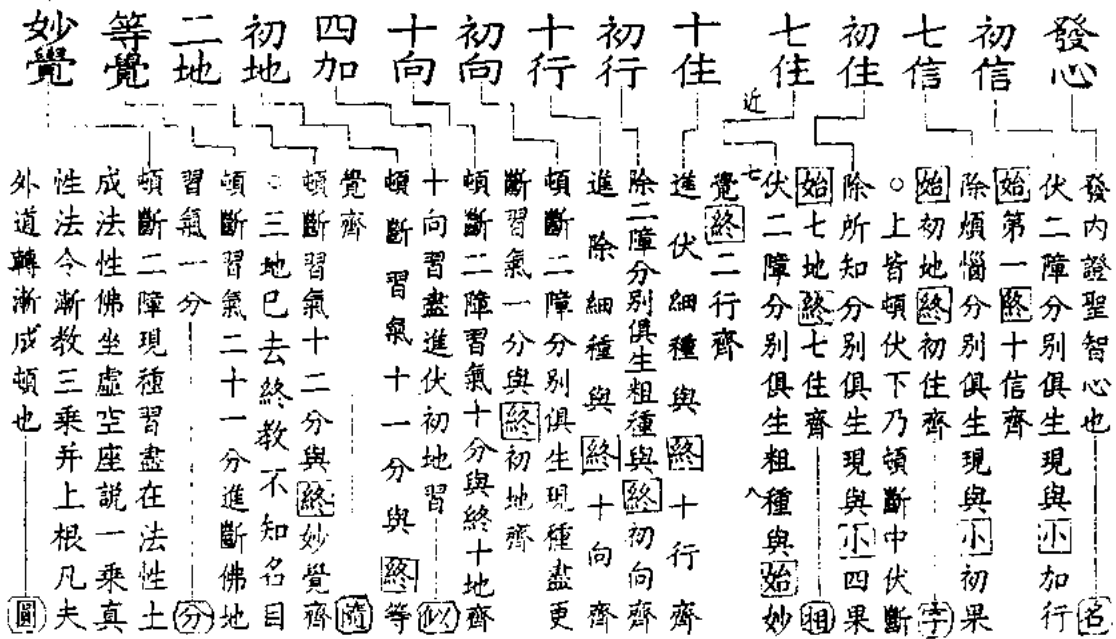 發心
初信
七信
初住
七住
十住
初行
十行
初向
十向
四加
初地
二地
等覺
妙覺
近
發內證聖智心也 名
伏二障分別俱生現與小加行
始第一終十信齊
除煩惱分別俱生現與小初果
始初地終初住齊 字
○上皆頓伏下乃頓斷中伏斷
除所知分別俱生現與小四果
始七地終七住齊 相
七
伏二障分別俱生粗種與始妙
八
覺終二行齊
進伏細種與終十行齊
除二障分別俱生粗種與終初向齊
進除細種與終十向齊
頓斷二障分別俱生現種盡更
斷習氣一分與終初地齊
頓斷二障習氣十分與終十地齊
十向習盡進伏初地習 似
頓斷習氣十一分與終等
覺齊 隨
頓斷習氣十二分與終妙覺齊
○三地已去終教不知名目
頓斷習氣二十一分進斷佛地
習氣一分 分
頓斷二障現種習盡在法性土
成法性佛坐虛空座說一乘真
性法令漸教三乘并上根凡夫
外道轉漸成頓也 圓